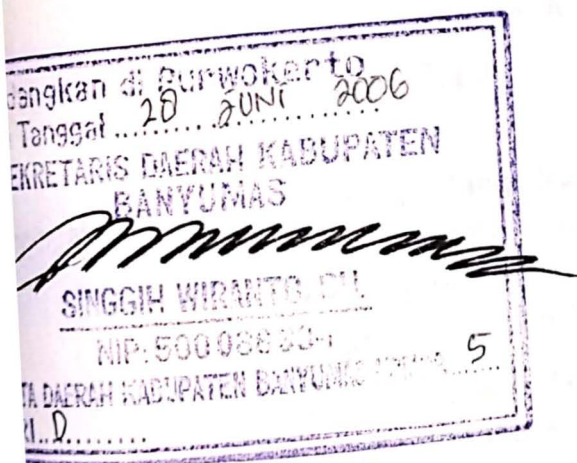 dangkan di Purwokerto
Tanggal ... 28 JUNI 2006
EKRETARIS DAERAH KABUPATEN
BANYUMAS
SINGGIH WIRANTO
NIP: 500
TA DAERAH KABUPATEN BANYUMAS ..... 5
RI .. D ........